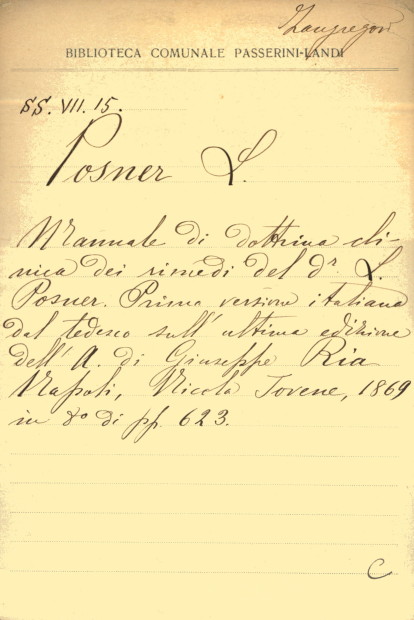 Zangregori
BIBLIOTECA COMUNALE PASSERINI-LANDI
SS. VII. 15.
Posner L.
Manuale di dottrina cli-
nica dei rimedi del dr. L.
Posner. Prima versione italiana
dal tedesco sull'ultima edizione
dell'A. di Giuseppe Ria
Napoli, Nicola Jovene, 1869
in 8o di pp. 623.
C